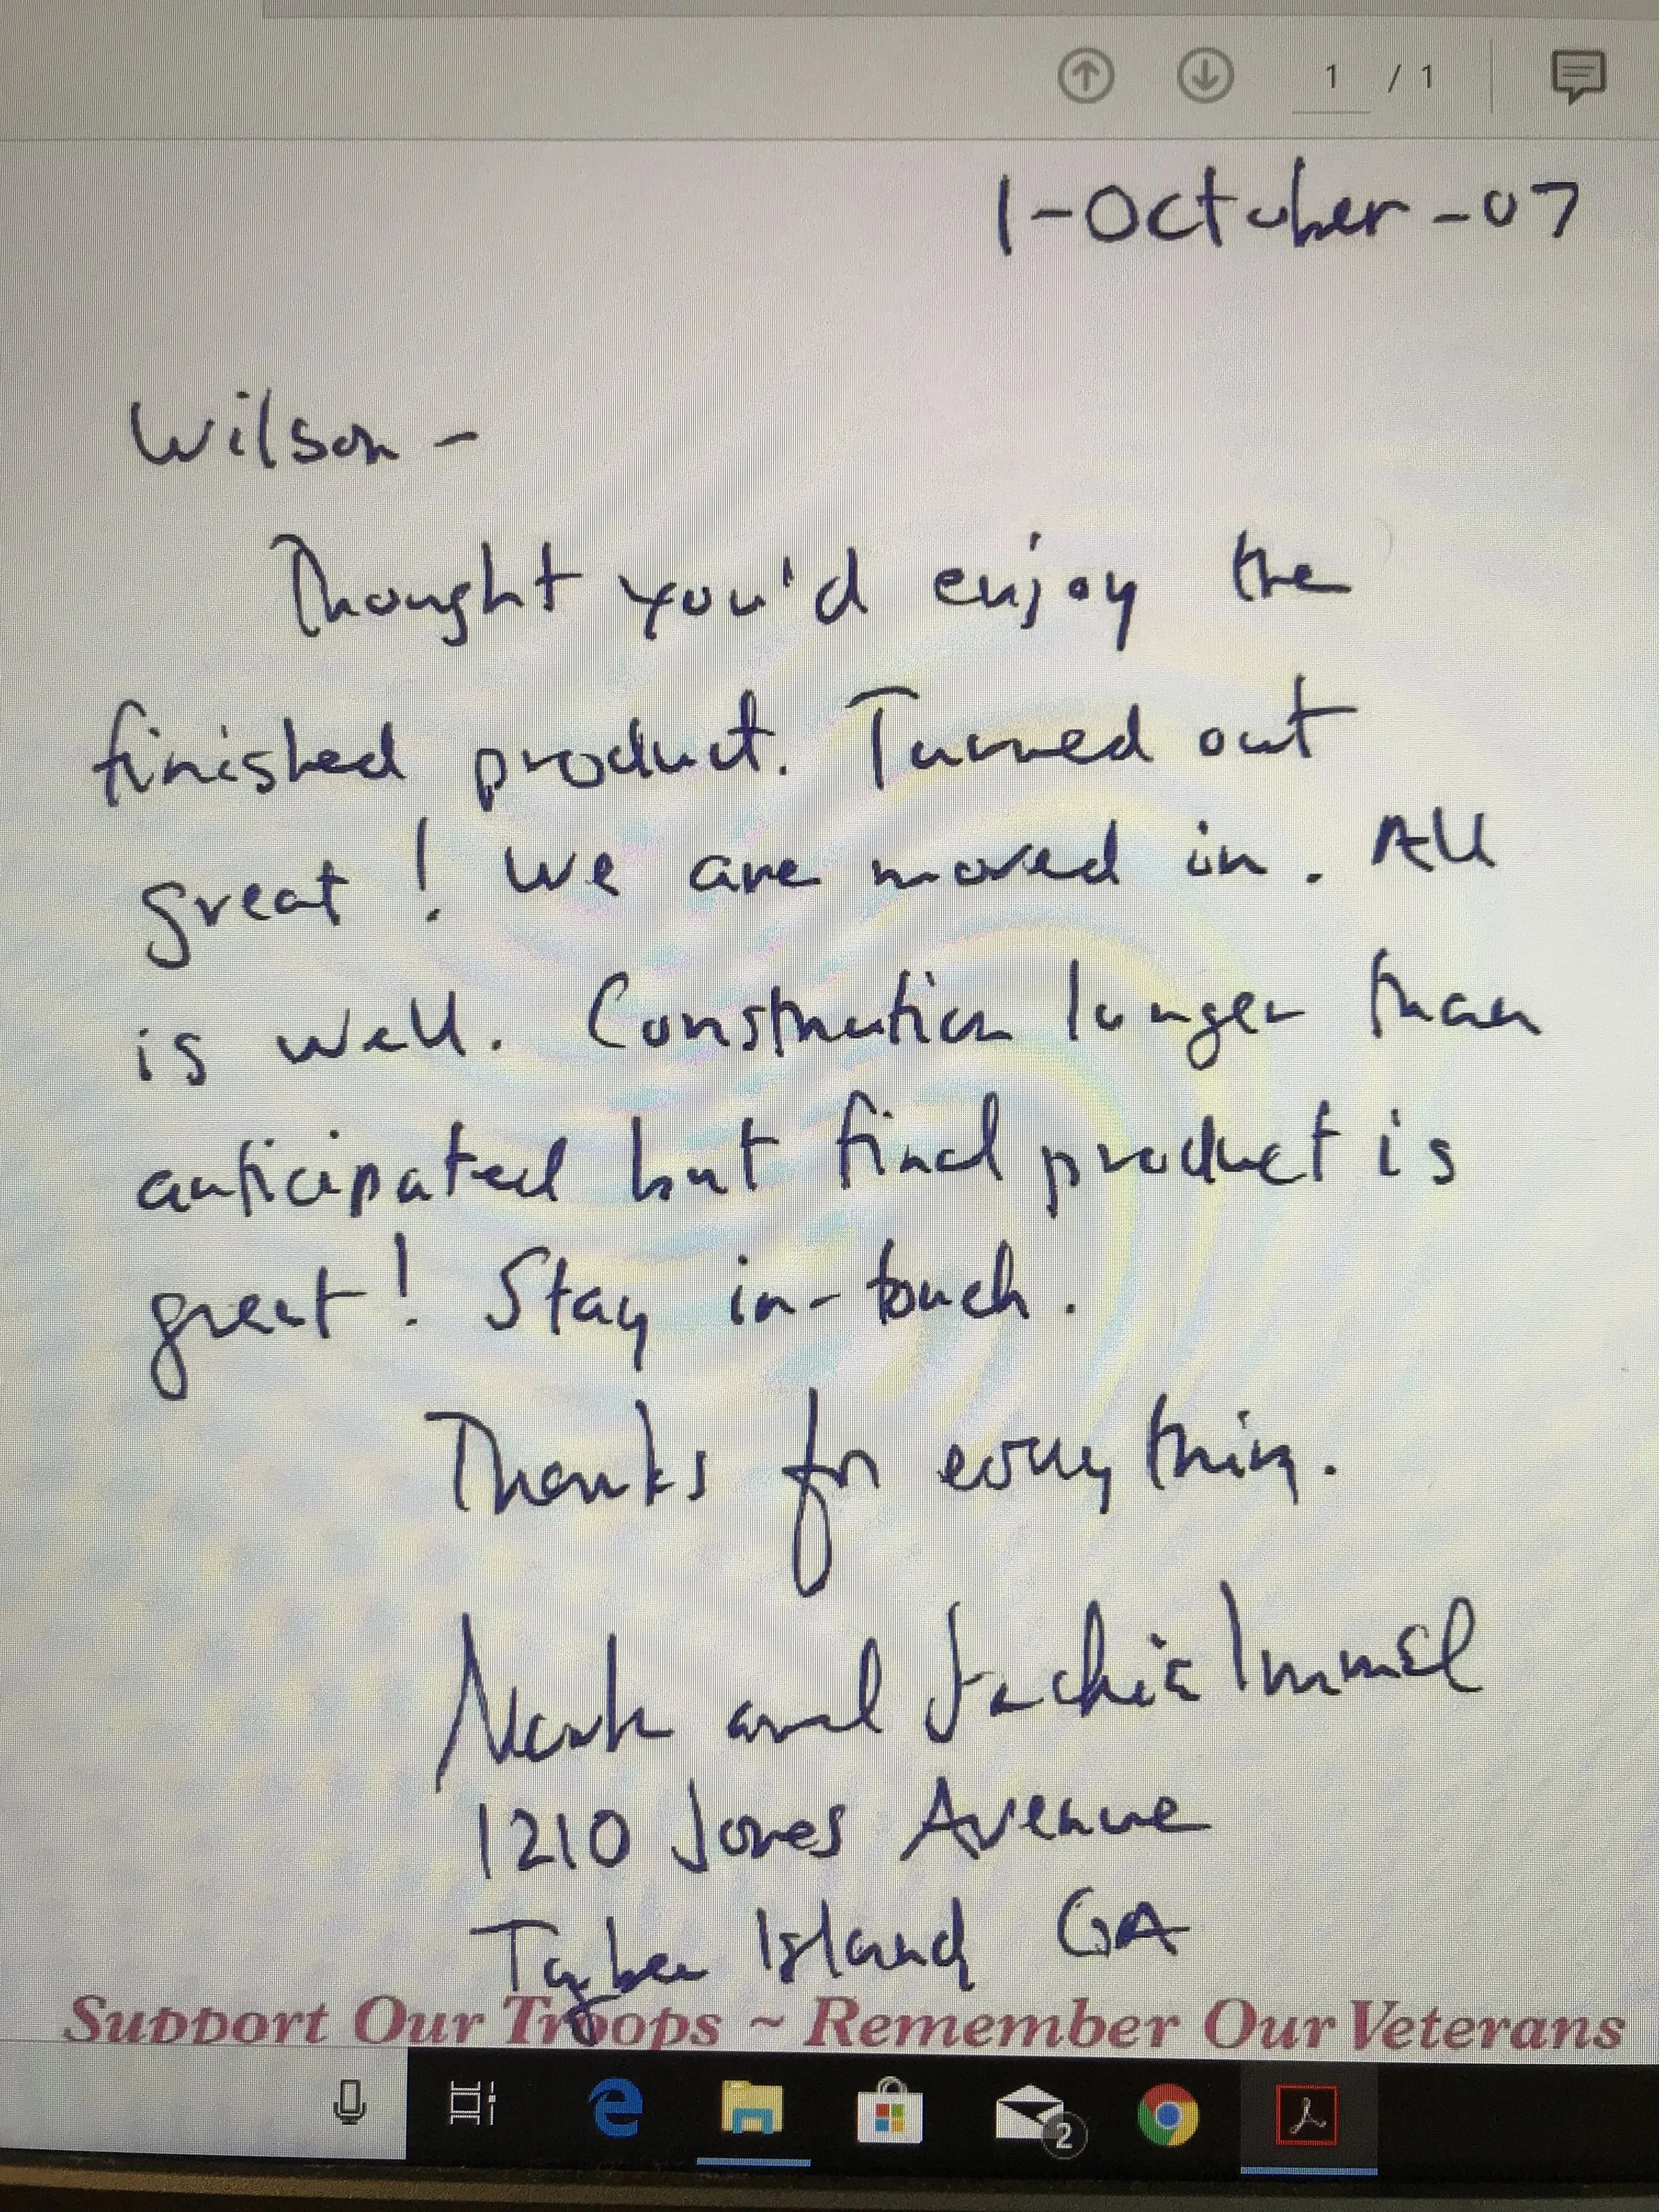 1 / 1
1-October-07
Wilson -
Thought you'd enjoy the
finished product. Turned out
great! We are moved in. All
is well. Construction longer than
anticipated but final product is
great! Stay in-touch.
Thanks for everything.
and Jackie Immel
1210 Jones Avenue
Tybee Island GA
Support Our Troops ~ Remember Our Veterans
2